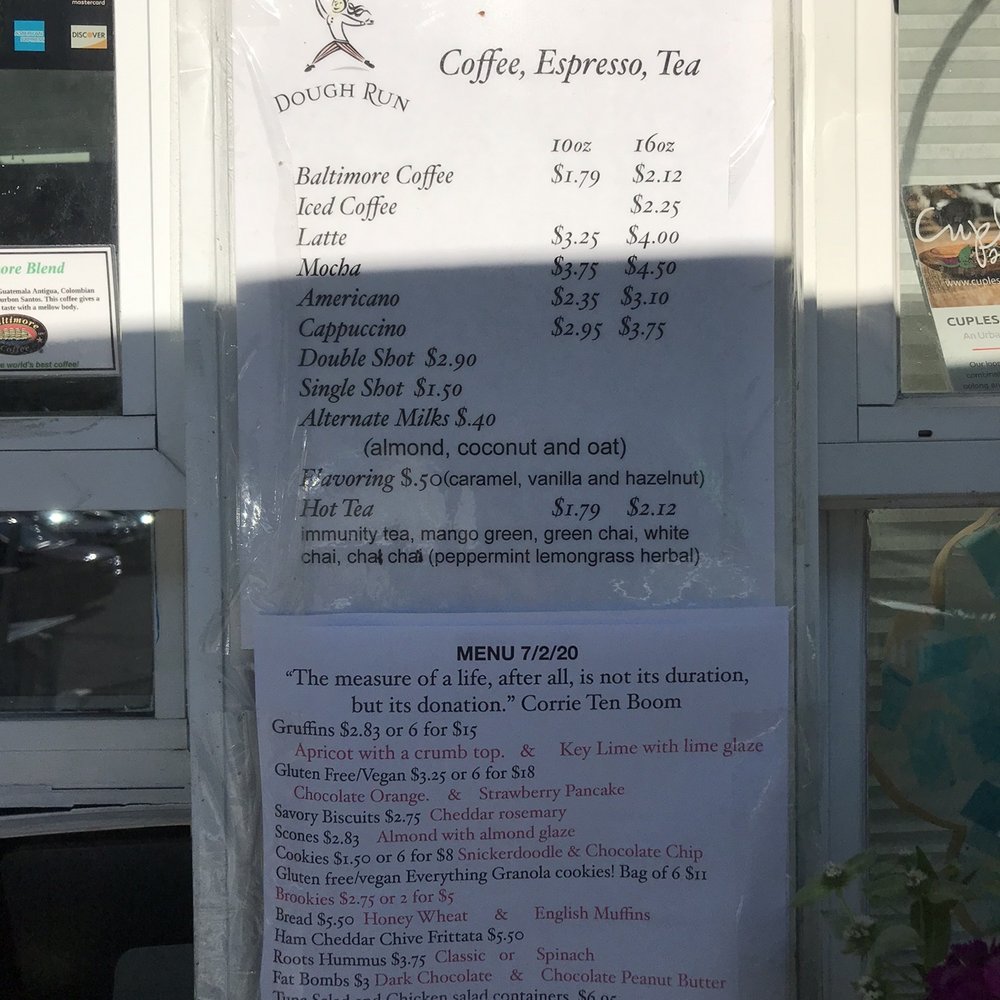 mastercard
AMERICAN EXPRESS
DISCOVER
DOUGH RUN
Coffee, Espresso, Tea
10oz 16oz
Baltimore Coffee $1.79 $2.12
Iced Coffee $2.25
Latte $3.25 $4.00
Mocha $3.75 $4.50
Americano $2.35 $3.10
Cappuccino $2.95 $3.75
Double Shot $2.90
Single Shot $1.50
Alternate Milks $.40
(almond, coconut and oat)
Flavoring $.50(caramel, vanilla and hazelnut)
Hot Tea $1.79 $2.12
immunity tea, mango green, green chai, white
chai, chai chai (peppermint lemongrass herbal)
MENU 7/2/20
“The measure of a life, after all, is not its duration,
but its donation.” Corrie Ten Boom
Gruffins $2.83 or 6 for $15
Apricot with a crumb top. & Key Lime with lime glaze
Gluten Free/Vegan $3.25 or 6 for $18
Chocolate Orange. & Strawberry Pancake
Savory Biscuits $2.75 Cheddar rosemary
Scones $2.83 Almond with almond glaze
Cookies $1.50 or 6 for $8 Snickerdoodle & Chocolate Chip
Gluten free/vegan Everything Granola cookies! Bag of 6 $11
Brookies $2.75 or 2 for $5
Bread $5.50 Honey Wheat & English Muffins
Ham Cheddar Chive Frittata $5.50
Roots Hummus $3.75 Classic or Spinach
Fat Bombs $3 Dark Chocolate & Chocolate Peanut Butter
Tuna Salad and Chicken salad containers $6.95
ore Blend
Guatemala Antigua, Colombian
urbon Santos. This coffee gives a
taste with a mellow body.
ltimore
Coffee
e world's best coffee!
Cup
www.cuples
CUPLES
An Urba
Our
combina
oolong an